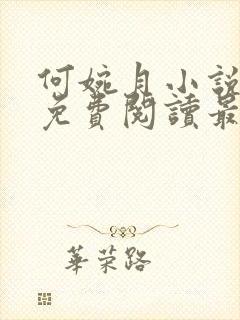 何婉月小說
免費閱讀最
華榮路